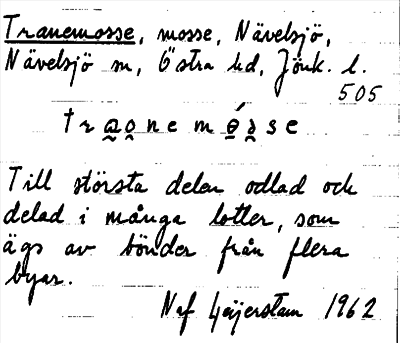 Tranemosse, mosse, Nävelsjö,
Nävelsjö sn, Östra hd, Jönk. l.
505
Till största delen odlad och
delad i många lotter, som
ägs av bönder från flera
byar.
Naf Geijerstam 1962